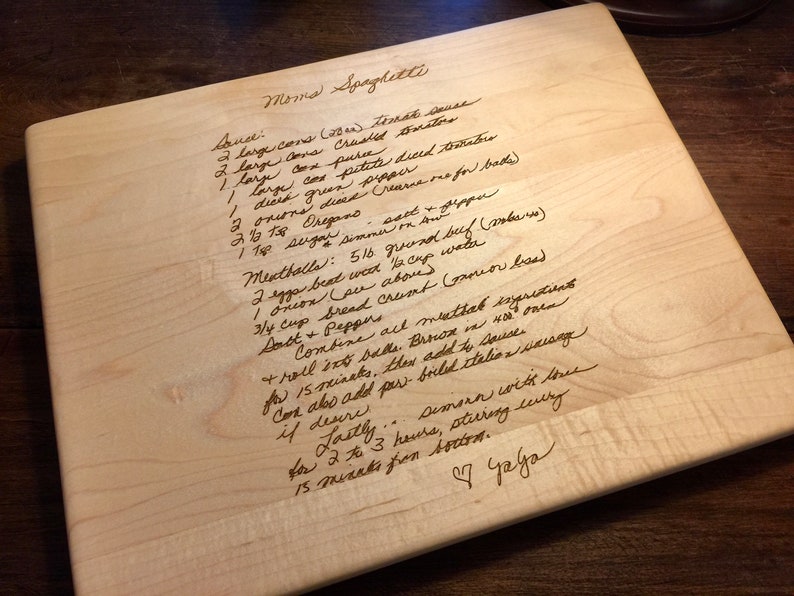 Moms Spaghetti
Sauce:
2 large cans (28oz) tomato sauce
2 large cans crushed tomatoes
1 large can puree
1 large can petite diced tomatoes
1 diced green pepper
2 onions diced (reserve one for balls)
2 1/2 tsp Oregano
1 tsp sugar ... salt & pepper
& simmer on low
Meatballs: 5 lb. ground beef (makes 40)
2 eggs beat with 1/2 cup water
1 onion (see above)
3/4 cup bread crumb (more or less)
Salt & Peppers
Combine all meatball ingredients
& roll into balls. Brown in 400° oven
for 15 minutes, then add to sauce.
Can also add par-boiled italian sausage
if desire.
Lastly... simmer with love
for 2 to 3 hours, stirring every
15 minutes from bottom.
♡ YaYa